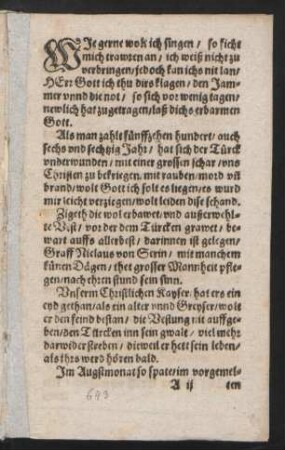 WJe gerne wolt ich singen / so ficht
mich trawren an / ich weiß nicht zu
verbringen / jedoch kan ichs nit lan /
HErr Gott ich thu dirs klagen / den Jam-
mer vnnd die not / so sich vor wenig tagen /
newlich hat zugetragen / laß dichs erbarmen
Gott.
Als man zahlt fünffzehen hundert / auch
sechs vnd sechtzig Jahr / hat sich der Türck
vnderwunden / mit einer grossen schar / vns
Christen zu bekriegen, mit rauben / mord vñ
brand / wolt Gott ich solt es liegen / es wurd
mir leicht verziegen / wolt leiden dise schand.
Zigeth die wol erbawet / vnd außerwehl-
te Vest / vor der dem Türcken grawet / be-
wart auffs allerbest / darinnen ist gelegen /
Graff Niclaus von Serin / mit manchem
künen Dägen / thet grosser Mannheit pfle-
gen / nach ehren stund sein sinn.
Vnserm Christlichen Kayser / hat ers ein
eyd gethan / als ein alter vnnd Greyser / wolt
er den feind bestan / die Vestung nit auffge-
ben / den Türcken inn sein gwalt / viel mehr
darwider streben / dieweil er hett sein leben /
als jhrs werd hören bald.
Im Augstmonat so spate / im vorgemel-
A ij ten
693